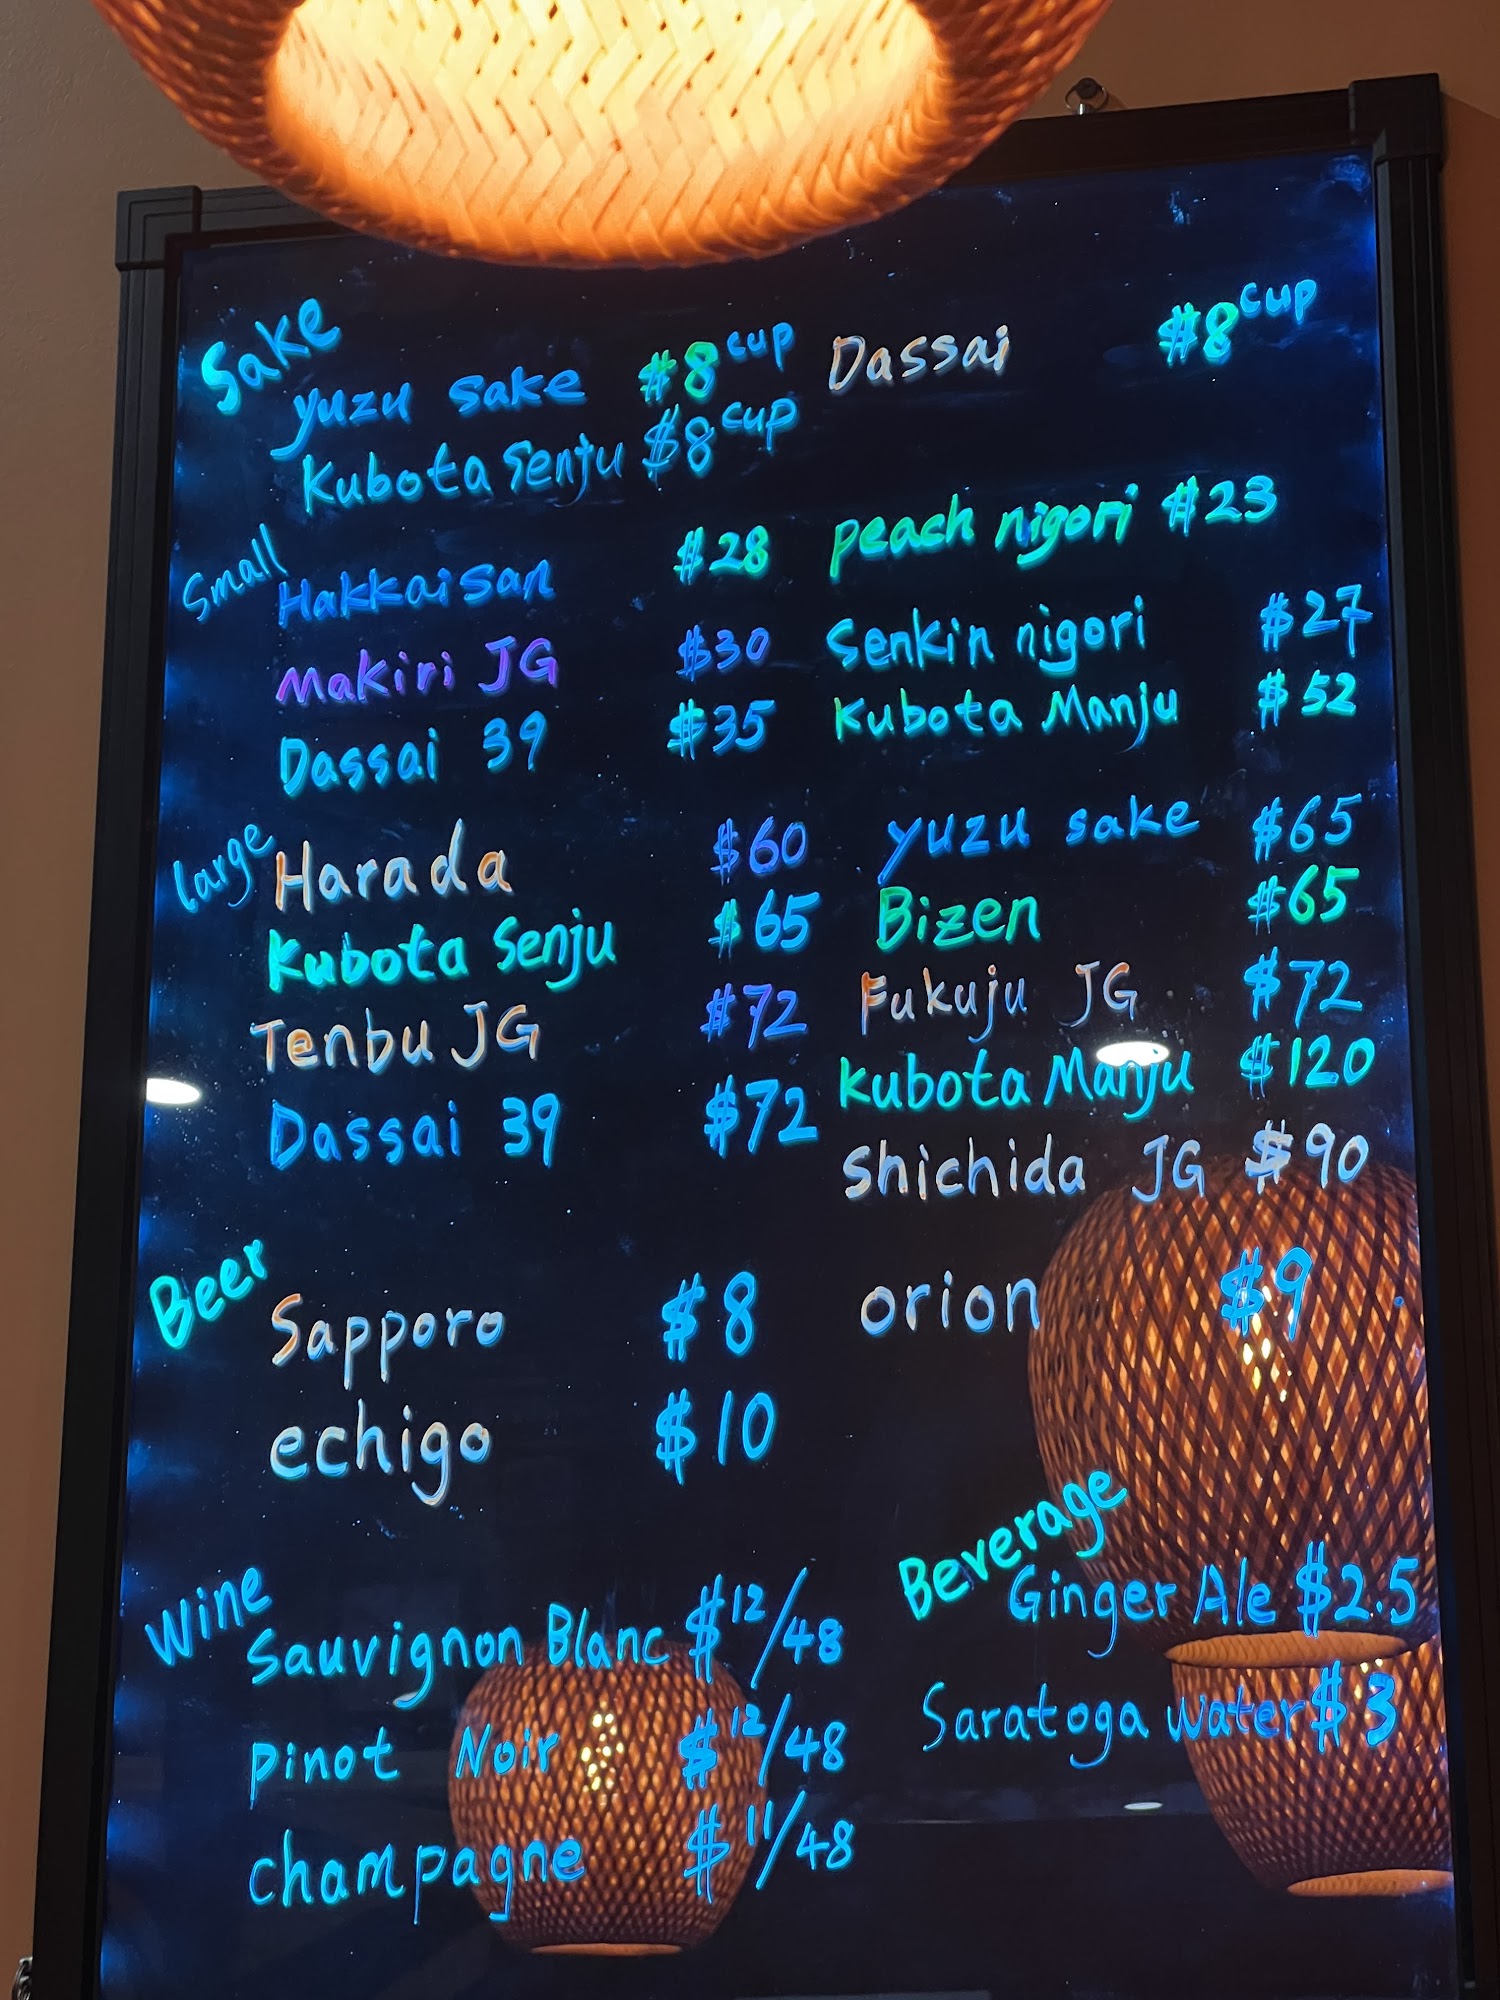 Sake
yuzu sake $8 cup Dassai $8 cup
Kubota Senju $8 cup
Small
Hakkaisan $28 peach nigori $23
Makiri JG $30 Senkin nigori $27
Dassai 39 $35 Kubota Manju $52
large
Harada $60 yuzu sake $65
Kubota Senju $65 Bizen $65
Tenbu JG $72 Fukuju JG $72
Dassai 39 $72 Kubota Manju $120
Shichida JG $90
Beer
Sapporo $8 orion $9
echigo $10
Wine
Sauvignon Blanc $12/48
Pinot Noir $12/48
champagne $11/48
Beverage
Ginger Ale $2.5
Saratoga water $3